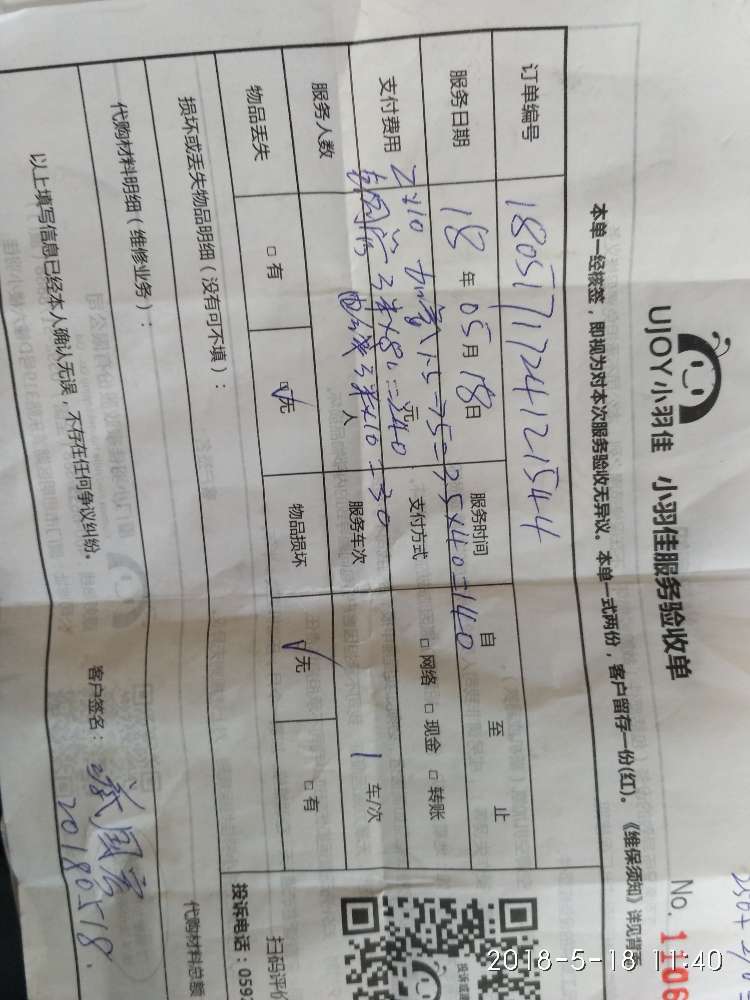 UJOY小羽佳 小羽佳服务验收单
No. 1106
本单一经接签，即视为对本次服务验收无异议。本单一式两份，客户留存一份(红)。《维保须知》详见背面
订单编号 1805171724121544
服务日期 18 年 05 月 18 日 服务时间 自 至 止
支付费用 元 支付方式 □ 网络 □ 现金 □ 转账
=35×40=140
3米×80=240
3米×10=30
服务人数 人 服务车次 1 车/次
物品丢失 □ 有 ☑ 无 物品损坏 ☑ 无 □ 有
损坏或丢失物品明细（没有可不填）：
代购材料明细（维修业务）： 代购材料总额
以上填写信息已经本人确认无误，不存在任何争议纠纷。 客户签名：
20180518.
扫码评价
投诉电话：059
2018-5-18 11:40